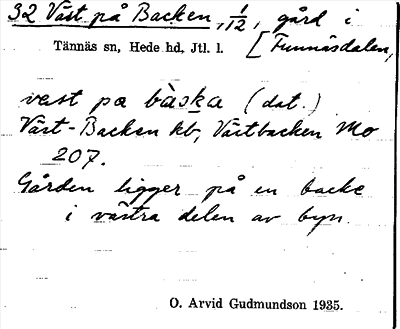 32 Väst på Backen, 1/12, gård i
Tännäs sn, Hede hd. Jtl. l. [Funnäsdalen,
väst pa bàska (dat.)
Väst-Backen kb, Västbacken Mo
207.
Gården ligger på en backe
i västra delen av byn.
O. Arvid Gudmundson 1935.